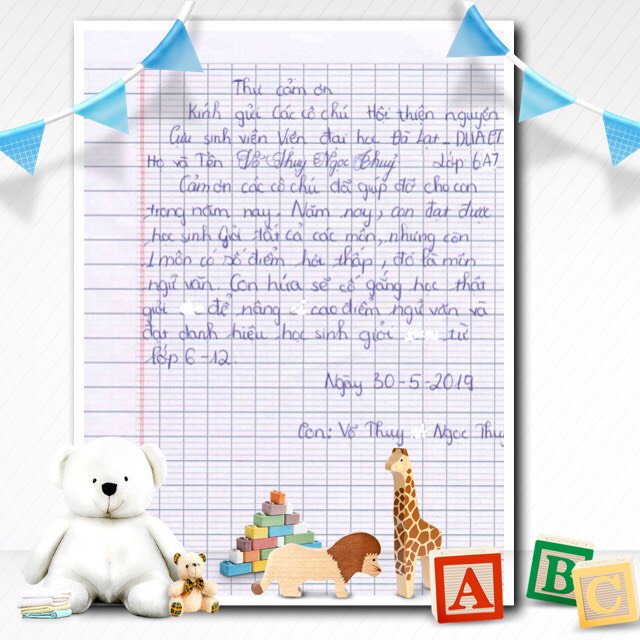 Thư cảm ơn
Kính gửi Các cô chú Hội thiện nguyện
Cựu sinh viên Viện đại học Đà Lạt - DUAET
Họ và Tên Võ Thuỵ Ngọc Thuỷ Lớp 6A7
Cảm ơn các cô chú đã giúp đỡ cho con
trong năm nay. Năm nay, con đạt được
học sinh Giỏi tất cả các môn, nhưng còn
1 môn có số điểm hơi thấp, đó là môn
ngữ văn. Con hứa sẽ cố gắng học thật
giỏi để nâng cao điểm ngữ văn và
đạt danh hiệu học sinh giỏi từ
lớp 6-12.
Ngày 30-5-2019
Con: Võ Thuỵ Ngọc Thuỷ
A
B
C